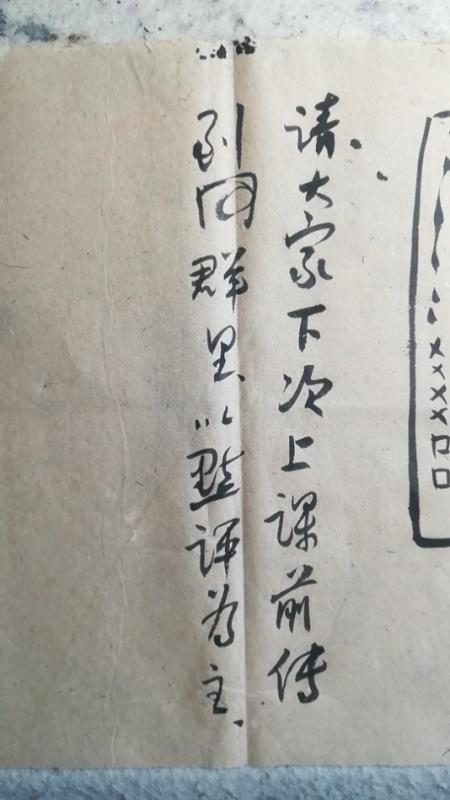 请大家下次上课前传
到群里以點评为主